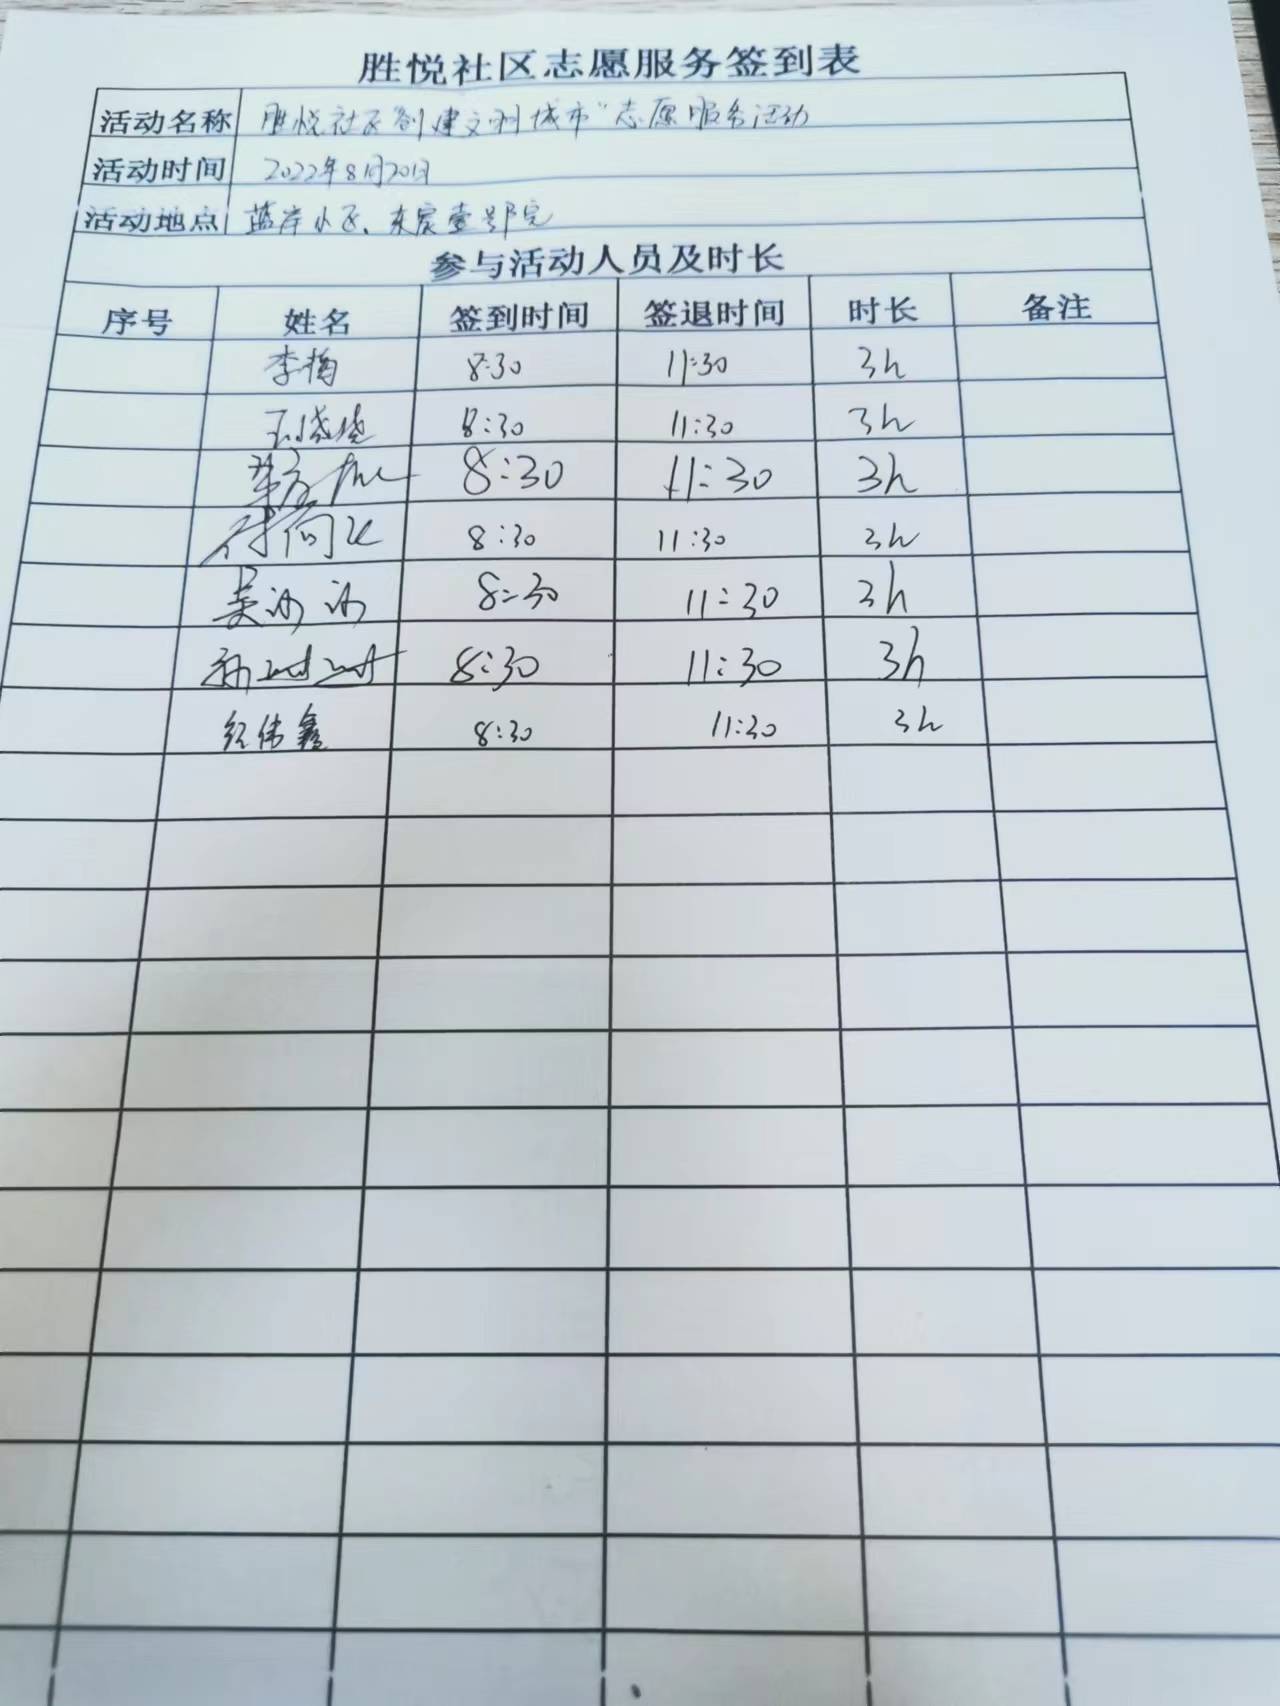 胜悦社区志愿服务签到表
活动名称 胜悦社区创建文明城市"志愿服务活动
活动时间 2022年8月20日
活动地点 蓝岸小区、东宸壹号院
参与活动人员及时长
序号 姓名 签到时间 签退时间 时长 备注
李梅 8:30 11:30 3h
王晓晓 8:30 11:30 3h
8:30 11:30 3h
付向飞 8:30 11:30 3h
吴沙沙 8:30 11:30 3h
孙 8:30 11:30 3h
纪伟鑫 8:30 11:30 3h